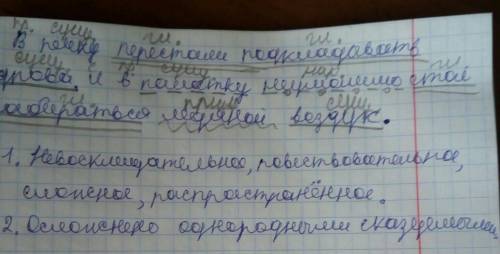 пр. сущ. гл. гл.
В печку перестали подкладывать
сущ. пр. сущ. нар. гл.
дрова, и в палатку неумолимо стал
гл. прил. сущ.
забираться ледяной воздух.
1. Невосклицательное, повествовательное,
сложное, распространённое.
2. Осложнено однородными сказуемыми.